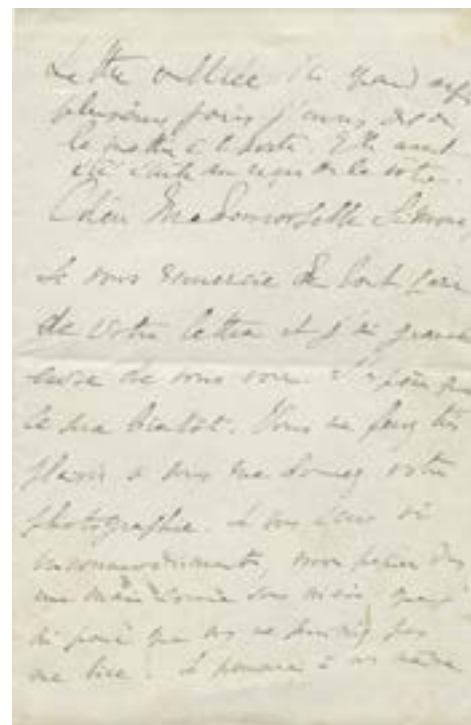 Lettre oubliée
plusieurs fois j'avais dit de
la mettre à la poste. Elle avait
été écrite au reçu de la votre.
Chère Mademoiselle Simone
Je vous remercie de tout cœur
de votre lettre et j'ai grande
envie de vous voir. J'espère que
ce sera bientôt. Vous me ferez très
plaisir si vous me donnez votre
photographie. Je vous écris si
mon papier dans
une main
ai peur que vous ne pourrez pas
me lire. Je pensais à